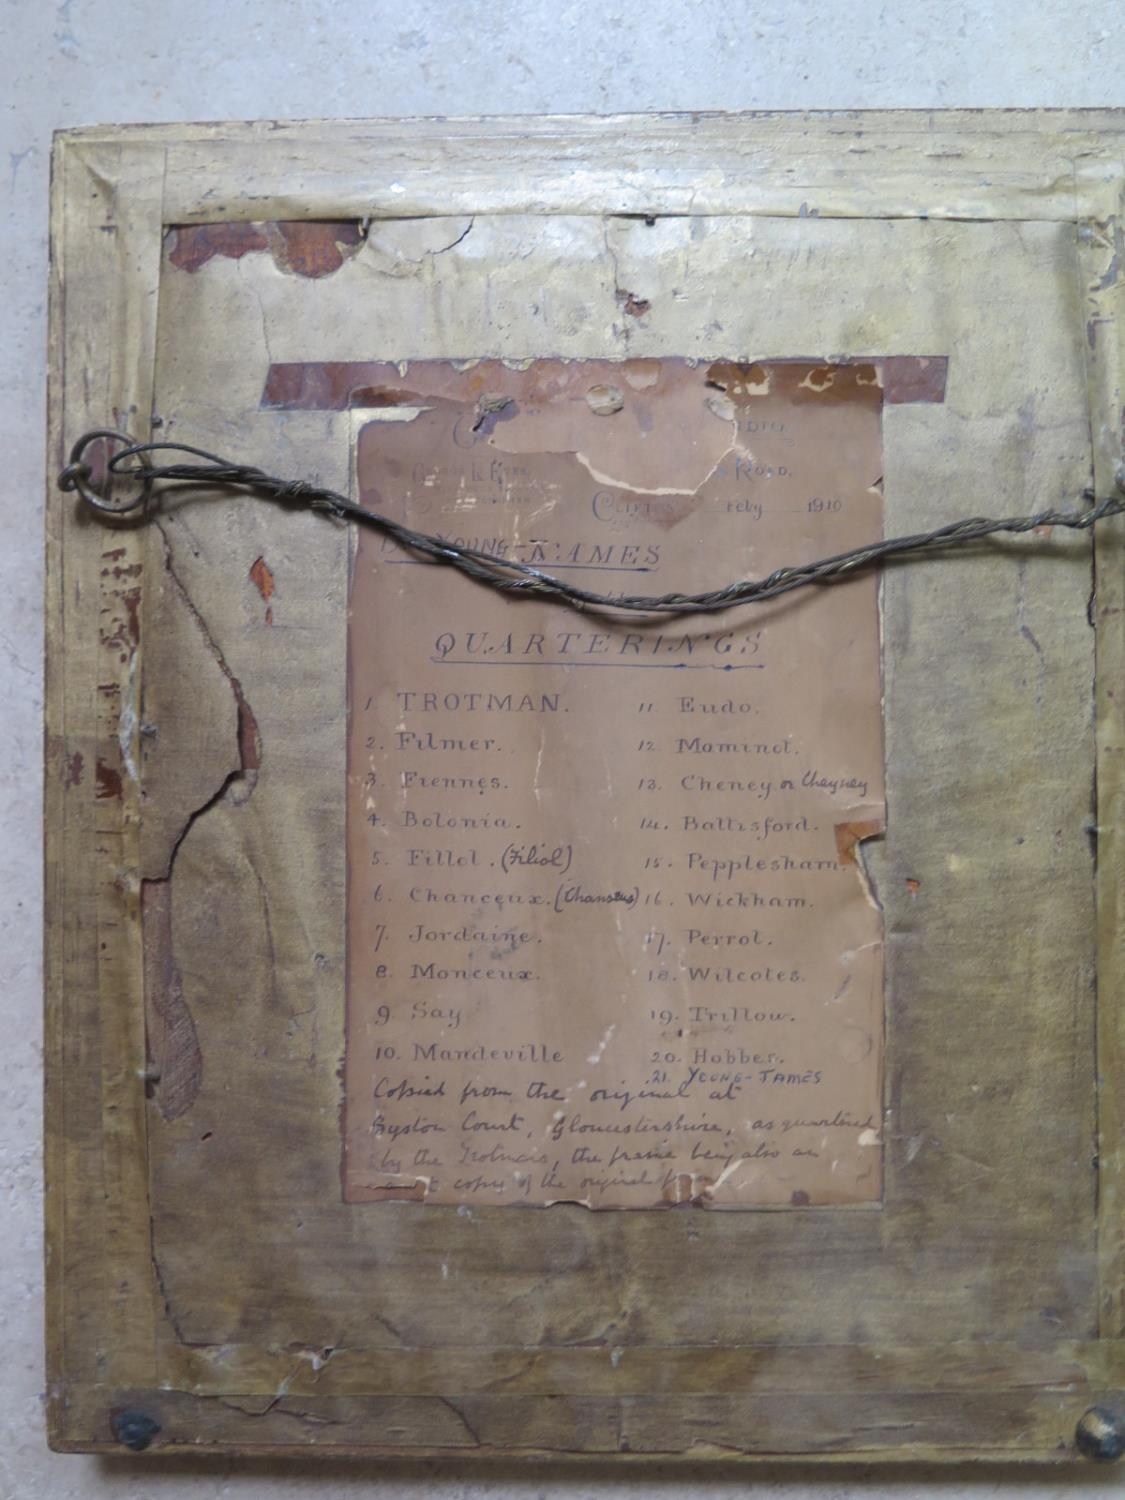 DIO
ROAD.
CLIFTON Feby 1910
YOUNG-JAMES
QUARTERINGS
1. TROTMAN.
2. Filmer.
3. Fiennes.
4. Bolonia.
5. Fillol. (Filiol)
6. Chanceux. (Chanseus)
7. Jordaine.
8. Monceux.
9. Say
10. Mandeville
11. Eudo.
12. Maminot.
13. Cheney or Cheyney
14. Battisford.
15. Pepplesham.
16. Wickham.
17. Perrot.
18. Wilcotes.
19. Trillow.
20. Hobbes.
21. YOUNG-JAMES
Copied from the original at
Syston Court, Gloucestershire, as quartered
by the Trotmans, the frame being also an
copy of the original